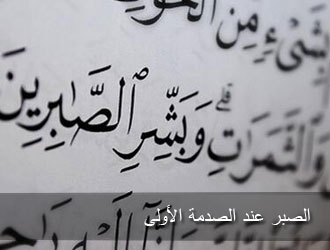 بِشَيْءٍ مِنَ الْخَوْفِ
وَالثَّمَرَاتِ ۗ وَبَشِّرِ الصَّابِرِينَ
الصبر عند الصدمة الأولى
إِنَّا إِلَيْهِ رَاجِ